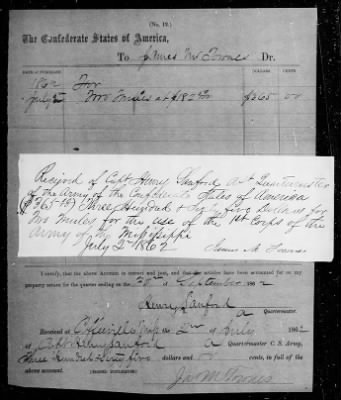 (No. 12.)
The Confederate States of America,
To James M Townes Dr.
DATE OF PURCHASE. DOLLARS CENTS
1862 For
July 2 Two Mules at $182 50 $365 00
Received of Capt Henry Sanford Ast Quartermaster
of the Army of the Confederate States of America
($365 00) Three Hundred & Sixty five Dollars for
Two Mules for the use of the 1st Corps of the
Army of the Mississippi
July 2d 1862 James M Townes
I certify, that the above Account is correct and just, and that the articles have been accounted for on my
property return for the quarter ending on the 30th of September 1862
Henry Sanford
a Quartermaster.
Received at Miss 2nd of July 1862
of Capt Henry Sanford a Quartermaster C. S. Army,
Three Hundred & Sixty five dollars and 00 cents, in full of the
above account.
Jas M Townes